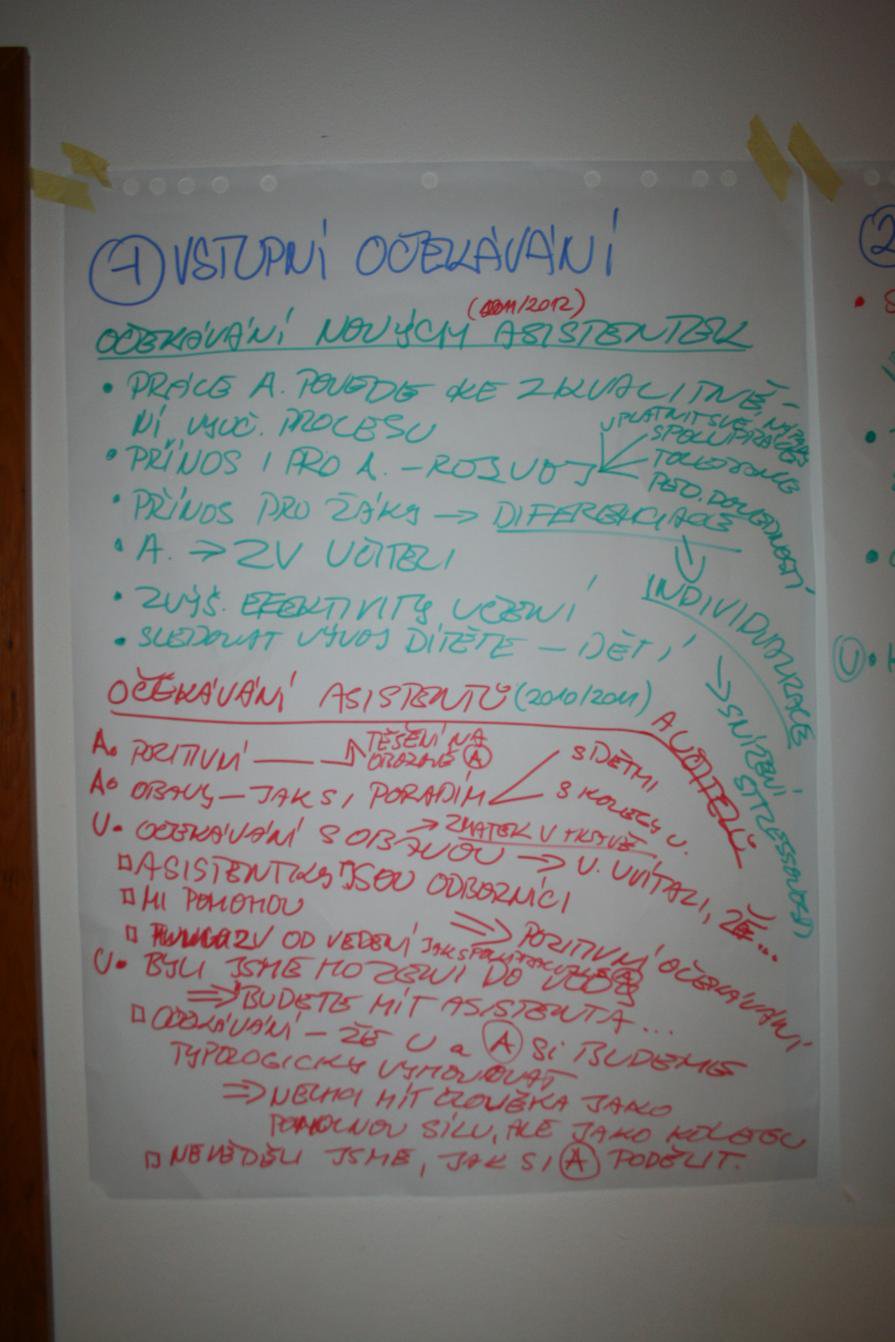 1 VSTUPNÍ OČEKÁVÁNÍ
(2011/2012)
OČEKÁVÁNÍ NOVÝCH ASISTENTEK
• PRÁCE A. POVEDE KE ZKVALITNĚ-
NÍ VYUČ. PROCESU
• PŘÍNOS I PRO A. – ROZVOJ
UPLATNIT SVÉ NÁPADY
SPOLUPRÁCE
TOLERANCE
PED. DOVEDNOSTÍ
• PŘÍNOS PRO ŽÁKY → DIFERENCIACE
⇒ INDIVIDUALIZACE
→ SNÍŽENÍ
STRESSOVOSTI
• A. → ZV UČITELI
• ZVÝŠ. EFEKTIVITY UČENÍ
• SLEDOVAT VÝVOJ DÍTĚTE – DĚTÍ
OČEKÁVÁNÍ ASISTENTŮ (2010/2011) A UČITELŮ
A• POZITIVNÍ — TĚŠENÍ NA
A
A• OBAVY – JAK SI PORADÍM
S DĚTMI
S KOLEGY U.
U• OČEKÁVÁNÍ S OBAVOU → U. UVÍTALI, ŽE...
→ ZMATEK V HLAVĚ
□ ASISTENTKY JSOU ODBORNÍCI
□ MI POMOHOU
⇒ POZITIVNÍ OČEKÁVÁNÍ
□ OD VEDENÍ JAK
U• BYLI JSME HOZENI DO
⇒ BUDETE MÍT ASISTENTA...
□ OČEKÁVÁNÍ – ŽE U a A SI BUDEME
TYPOLOGICKY VYHOVOVAT
⇒ NECHCI MÍT ČLOVĚKA JAKO
POMOCNOU SÍLU, ALE JAKO KOLEGU
□ NEVĚDĚLI JSME, JAK SI A PODĚLIT.
2